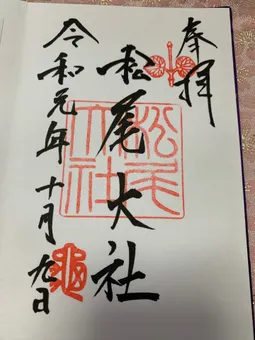 奉拝
松尾大社
松尾大社
令和元年十月九日
亀